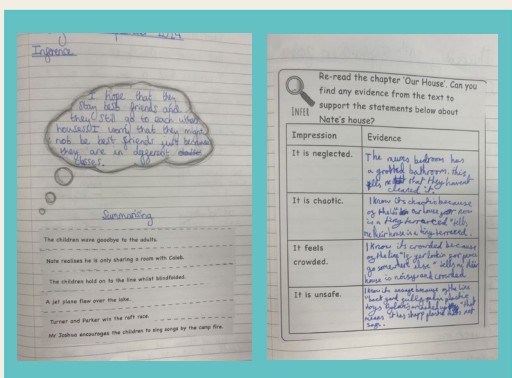 2024
Inference
I hope that they
stay best friends and
they still go to each other
houses. I worry that they might
not be best friends just because
they are in different
classes.
Summarising
The children wave goodbye to the adults.
Nate realises he is only sharing a room with Caleb.
The children hold on to the line whilst blindfolded.
A jet plane flew over the lake.
Turner and Parker win the raft race.
Mr Joshua encourages the children to sing songs by the camp fire.
INFER
Re-read the chapter 'Our House'. Can you
find any evidence from the text to
support the statements below about
Nate's house?
Impression
Evidence
It is neglected.
The bedroom has
a bathroom. this
tells me that they havent
cleaned it.
It is chaotic.
I know its chaotic because
of the line our house
is a tiny terraced tells
me their house is a tiny terraced.
It feels
crowded.
I know its crowded because
of the line "If your lookin for peace
go somewhere else" tells me this
house is noisy and crowded.
It is unsafe.
I know its unsafe because of the line
"back yard full of plastic
toys" that
means it has sharp plastic not
safe.